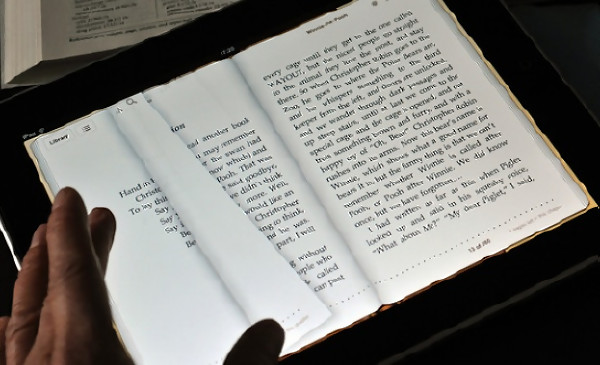 iPad
17:35
Library
Winnie-the-Pooh
ion
ad another book
may remember
he swan (had
now which) and
Pooh. That was
said goodbye,
e didn't think
more. Well,
would like an
Christopher
ng to think,
part, I will
g without
ople who
called
can past
Hand in
Christ
To lay thi
Say
Say
Be
Be
every cage until they get to the one called
WAYOUT, but the nicest people go straight
to the animal they love the most, and stay
there. So when Christopher Robin goes to the
Zoo, he goes to where the Polar Bears are,
and he whispers something to the third
keeper from the left, and doors are unlocked,
and we wander through dark passages and
up steep stairs, until at last we come to the
special cage and the cage is opened, and out
trots something brown and furry, and with a
happy cry of "Oh, Bear!" Christopher Robin
rushes into its arms. Now this bear's name is
Winnie, which shows what a good name for
bears it is, but the funny thing is that we can't
remember whether Winnie is called after
Pooh, or Pooh after Winnie. We did know
once, but we have forgotten....
I had written as far as this when Piglet
looked up and said in his squeaky voice,
"What about Me?" "My dear Piglet," I said,
13 of 160